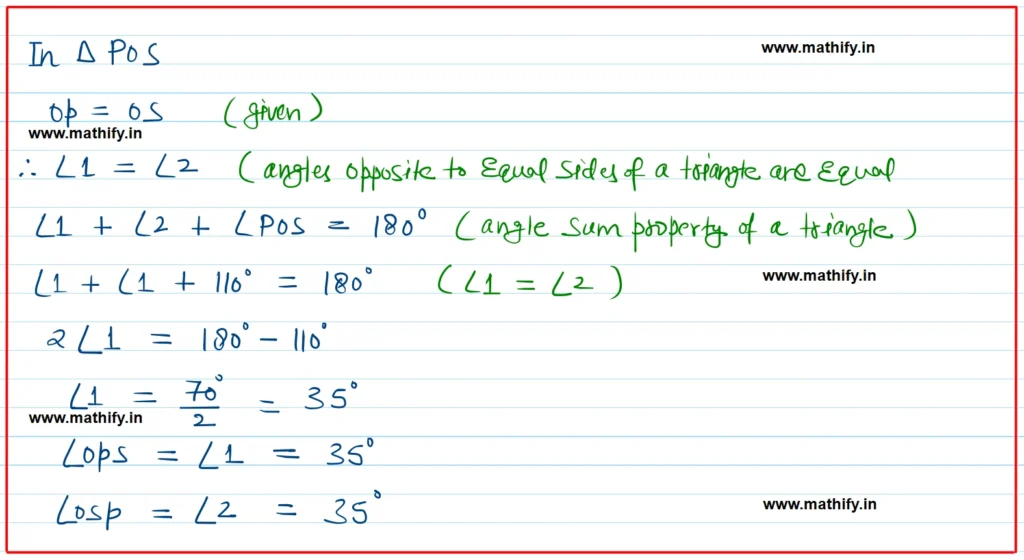 In Δ POS
www.mathify.in
OP = OS (given)
www.mathify.in
∴ ∠1 = ∠2 (angles opposite to Equal sides of a triangle are Equal
∠1 + ∠2 + ∠POS = 180° (angle sum property of a triangle)
∠1 + ∠1 + 110° = 180° (∠1 = ∠2)
www.mathify.in
2∠1 = 180° - 110°
∠1 = 70°/2 = 35°
www.mathify.in
∠OPS = ∠1 = 35°
∠OSP = ∠2 = 35°
www.mathify.in